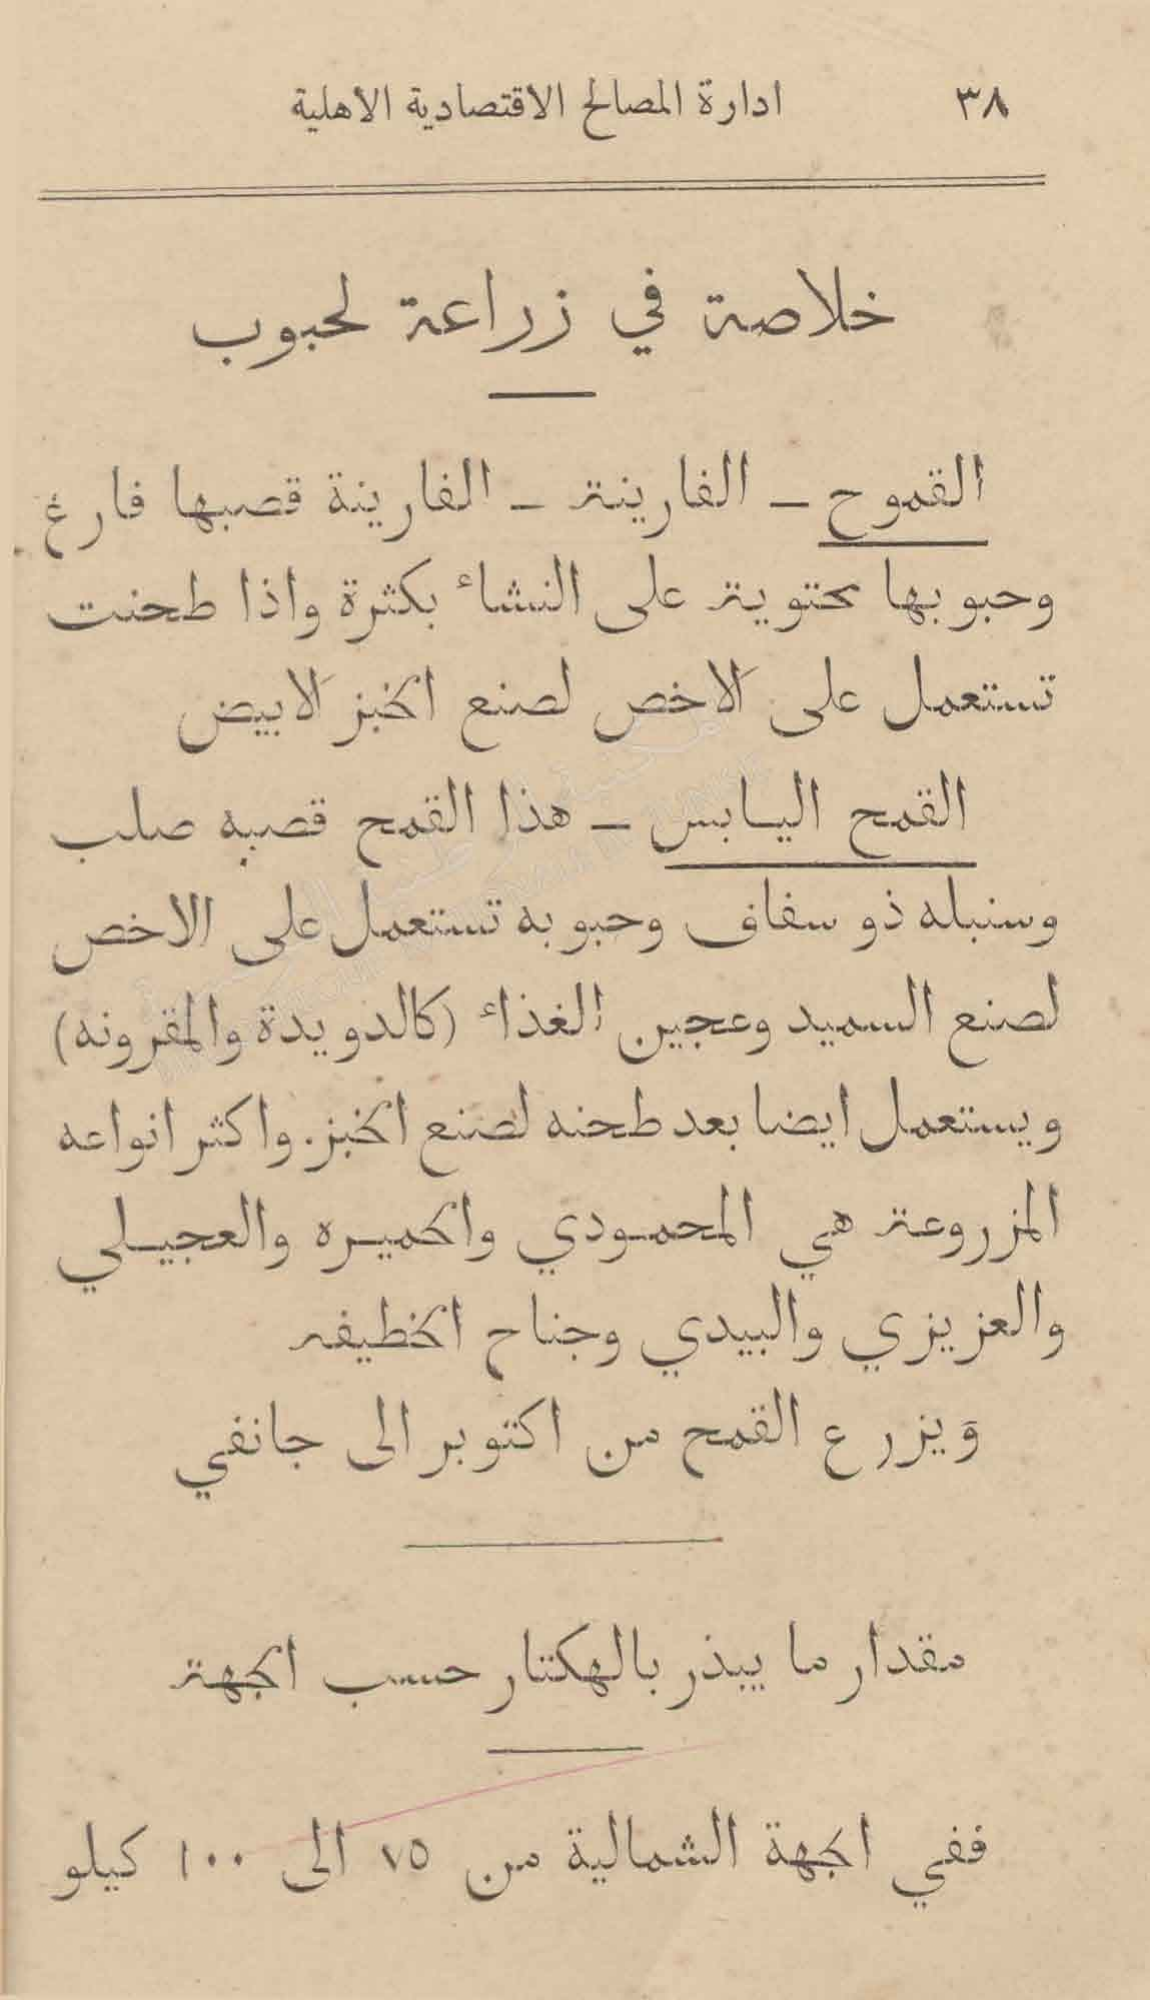 ٣٨ ادارة المصالح الاقتصادية الأهلية
خلاصة في زراعة لحبوب
القموح – الفارينة – الفارينة قصبها فارغ
وحبوبها محتوية على النشاء بكثرة واذا طحنت
تستعمل على الاخص لصنع الخبز الابيض
القمح اليابس – هذا القمح قصبه صلب
وسنبله ذو سفاف وحبوبه تستعمل على الاخص
لصنع السميد وعجين الغذاء (كالدويدة والمقرونه)
ويستعمل ايضا بعد طحنه لصنع الخبز. واكثر انواعه
المزروعة هي المحمودي والحميره والعجيلي
والعزيزي والبيدي وجناح الخطيفه
وَيزرع القمح من اكتوبر الى جانفي
مقدار ما يبذر بالهكتار حسب الجهة
ففي الجهة الشمالية من ٧٥ الى ١٠٠ كيلو